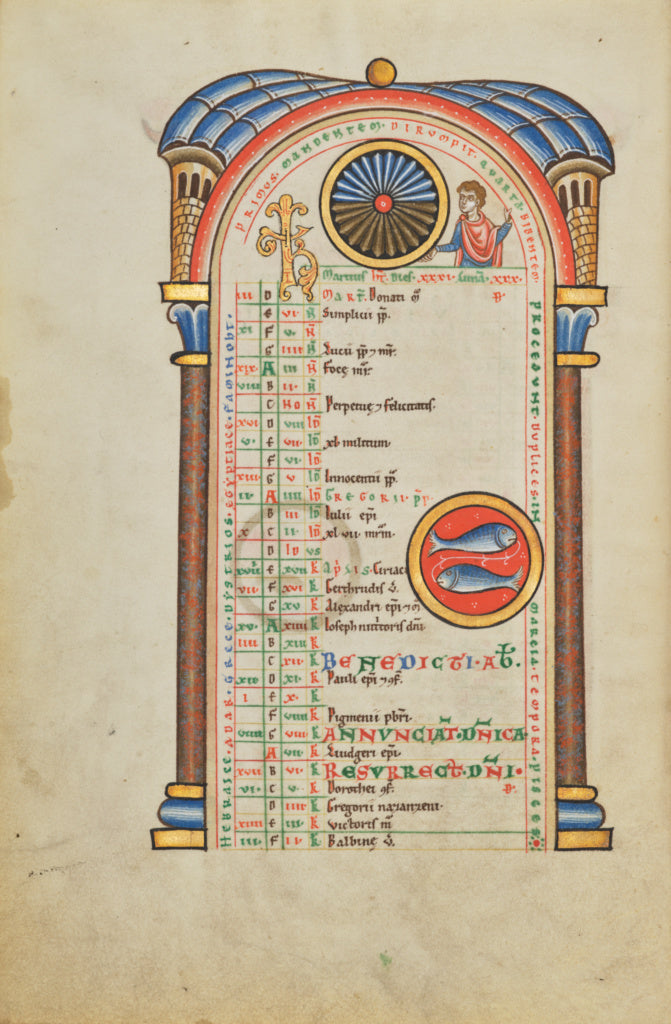 PRIMUS. MANDENTEM. DIRUMPIT. QUARTA. BIBENTEM.
Martius ht. Dies. xxxi. Luna. xxx.
iii D MART. Donati m̄
E vi N Simplicii pp.
xi F v N
G iiii N Lucii pp ⁊ mr.
xix A iii N Foce mr.
viii B ii N
C NO N Perpetue ⁊ felicitatis.
xvi D viii ID
v E vii ID xl militum.
F vi ID
xiii G v ID Innocentii pp.
ii A iiii ID GREGORII. pp.
B iii ID Iulii epi
x C ii ID xl vii mrm.
D ID us
xviii E xvii K Ciriaci
vii F xvi K Gerthrudis v̄.
G xv K Alexandri epi ⁊ m̄
xv A xiiii K Ioseph nutritoris dni
iiii B xiii K
C xii K BENEDICTI. AB.
xii D xi K Pauli epi ⁊ cf.
i E x K
F viiii K Pigmenii pbri.
viiii G viii K ANNUNCIAT. DNICA.
A vii K Liudgeri epi.
xvii B vi K RESURRECT. DNI.
vi C v K Dorothei cf.
D iiii K Gregorii nazanzeni.
xiiii E iii K Victoris m̄
iii F ii K Balbine v̄.
HEBRAICE. ADAR. GRECE. DYSTRIOS. EGYPTIACE. FAMINOHT.
PROCEDUNT. DUPLICES. IN MARCIA. TEMPORA. PISCES.